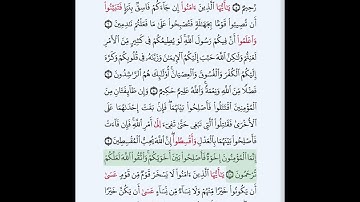 رَّحِيمٌ ۝ يَٰٓأَيُّهَا ٱلَّذِينَ ءَامَنُوٓا۟ إِن جَآءَكُمْ فَاسِقٌۢ بِنَبَإٍ فَتَبَيَّنُوٓا۟
أَن تُصِيبُوا۟ قَوْمًۢا بِجَهَٰلَةٍ فَتُصْبِحُوا۟ عَلَىٰ مَا فَعَلْتُمْ نَٰدِمِينَ ۝
وَٱعْلَمُوٓا۟ أَنَّ فِيكُمْ رَسُولَ ٱللَّهِ لَوْ يُطِيعُكُمْ فِى كَثِيرٍ مِّنَ ٱلْأَمْرِ
لَعَنِتُّمْ وَلَٰكِنَّ ٱللَّهَ حَبَّبَ إِلَيْكُمُ ٱلْإِيمَٰنَ وَزَيَّنَهُۥ فِى قُلُوبِكُمْ وَكَرَّهَ
إِلَيْكُمُ ٱلْكُفْرَ وَٱلْفُسُوقَ وَٱلْعِصْيَانَ أُو۟لَٰٓئِكَ هُمُ ٱلرَّٰشِدُونَ ۝
فَضْلًا مِّنَ ٱللَّهِ وَنِعْمَةً وَٱللَّهُ عَلِيمٌ حَكِيمٌ ۝ وَإِن طَآئِفَتَانِ
مِنَ ٱلْمُؤْمِنِينَ ٱقْتَتَلُوا۟ فَأَصْلِحُوا۟ بَيْنَهُمَا فَإِنۢ بَغَتْ إِحْدَىٰهُمَا عَلَى
ٱلْأُخْرَىٰ فَقَٰتِلُوا۟ ٱلَّتِى تَبْغِى حَتَّىٰ تَفِىٓءَ إِلَىٰٓ أَمْرِ ٱللَّهِ فَإِن فَآءَتْ
فَأَصْلِحُوا۟ بَيْنَهُمَا بِٱلْعَدْلِ وَأَقْسِطُوٓا۟ إِنَّ ٱللَّهَ يُحِبُّ ٱلْمُقْسِطِينَ ۝
إِنَّمَا ٱلْمُؤْمِنُونَ إِخْوَةٌ فَأَصْلِحُوا۟ بَيْنَ أَخَوَيْكُمْ وَٱتَّقُوا۟ ٱللَّهَ لَعَلَّكُمْ
تُرْحَمُونَ ۝ يَٰٓأَيُّهَا ٱلَّذِينَ ءَامَنُوا۟ لَا يَسْخَرْ قَوْمٌ مِّن قَوْمٍ عَسَىٰٓ
أَن يَكُونُوا۟ خَيْرًا مِّنْهُمْ وَلَا نِسَآءٌ مِّن نِّسَآءٍ عَسَىٰٓ أَن يَكُنَّ خَيْرًا